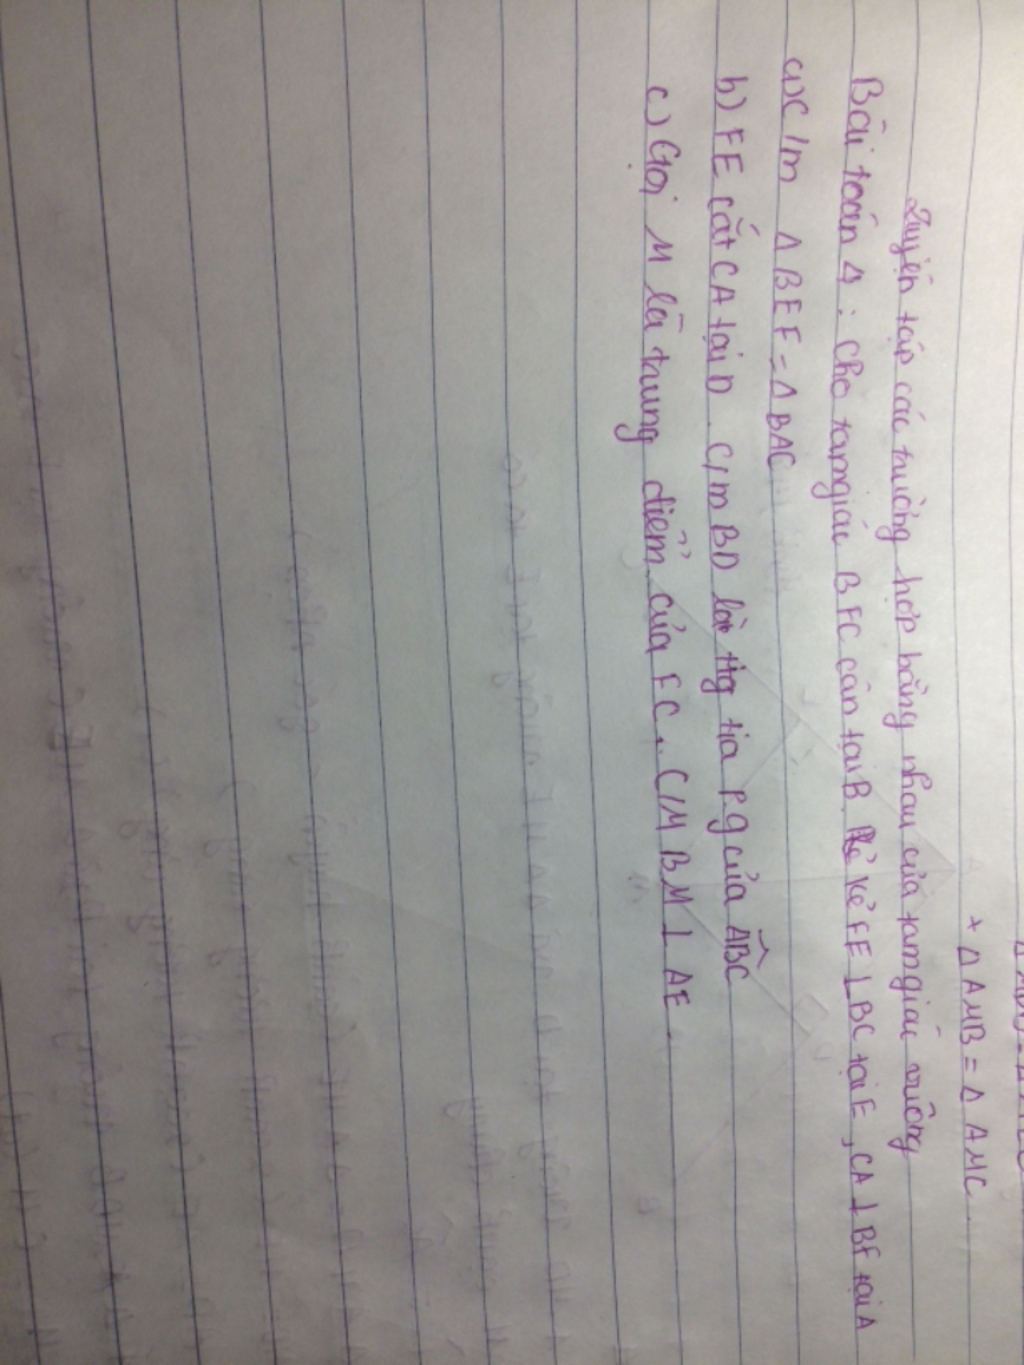 * Δ AMB = Δ AMC
Luyện tập các trường hợp bằng nhau của tam giác vuông
Bài toán Δ : Cho tam giác BFC cân tại B kẻ FE ⊥ BC tại E, CA ⊥ BF tại A
a) C/m Δ BEF = Δ BAC
b) FE cắt CA tại D. C/m BD là tia p.g của ABC
c) Gọi M là trung điểm của FC. C/M BM ⊥ AE.